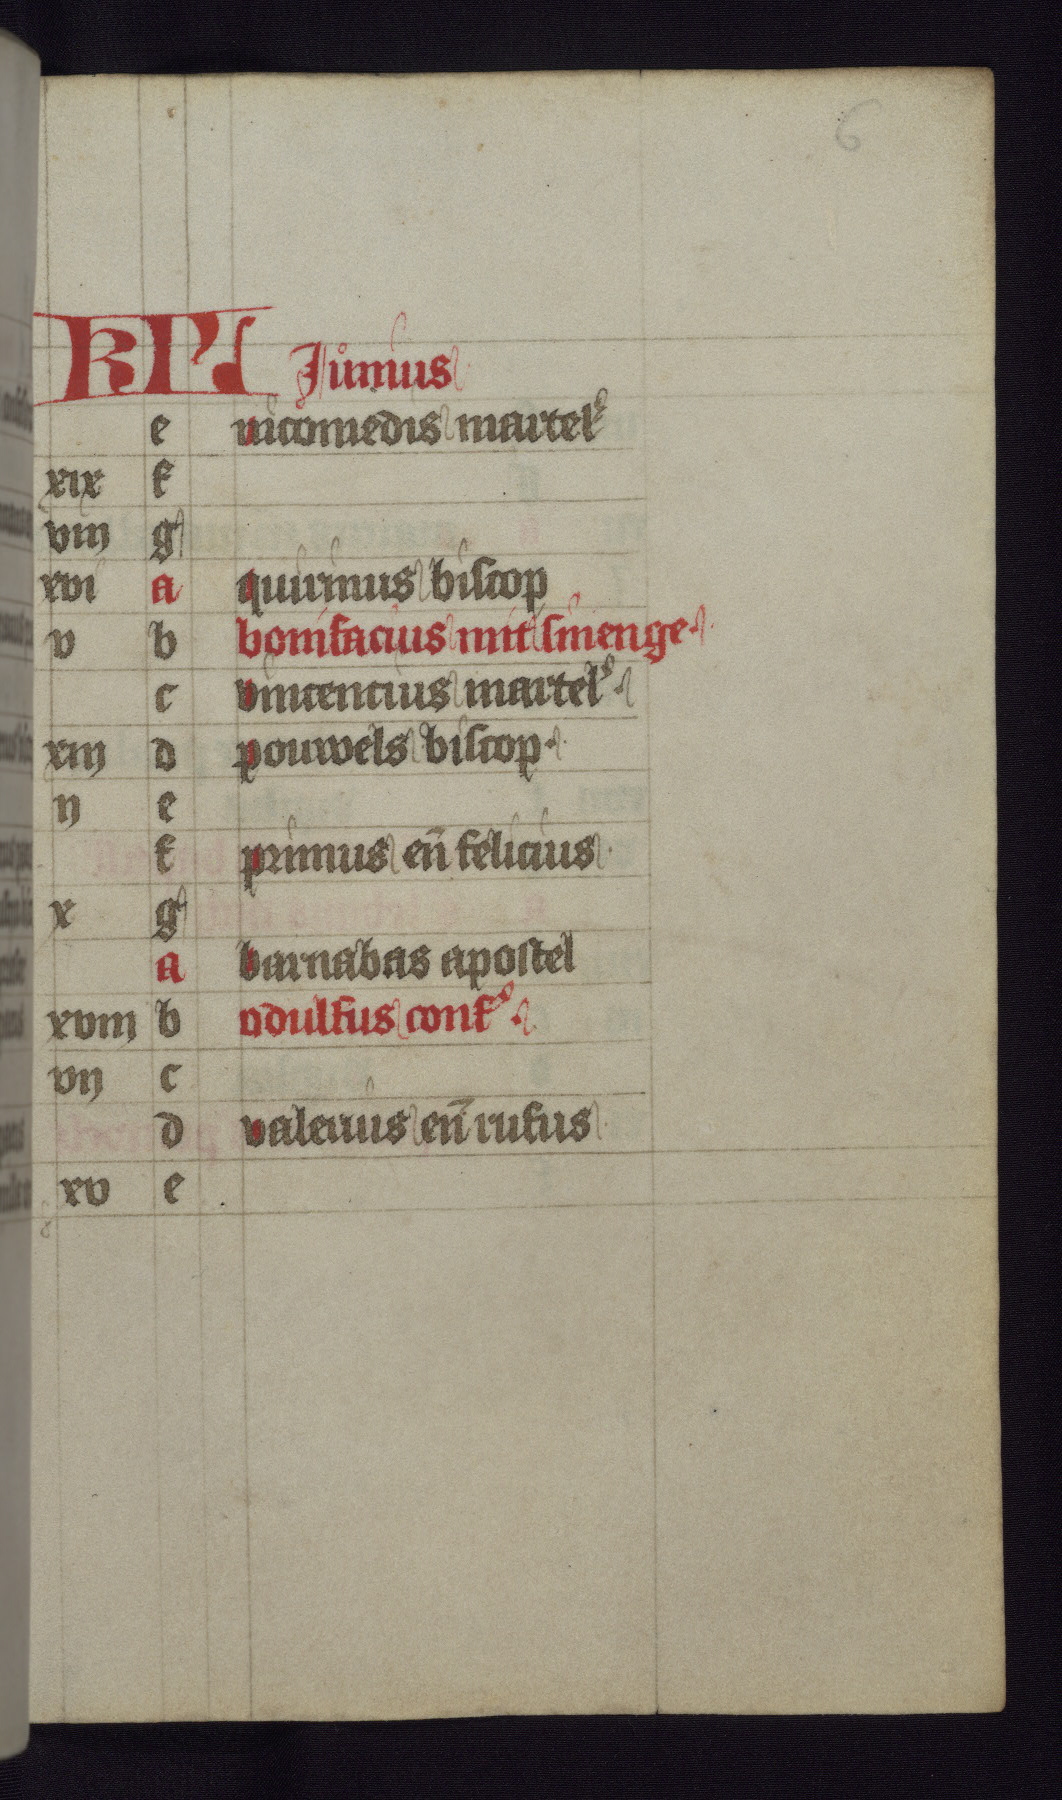 6
KL Junius
e nicomedis martel᷒
xix f
viij g
xvi a quirinus biscop
v b bonifacius mit sinenge
c vincencius martel᷒
xiij d pouwels biscop
ij e
f primus eñ felicius
x g
a barnabas apostel
xviij b odulfus conf᷒
vij c
d valerius eñ rufus
xv e